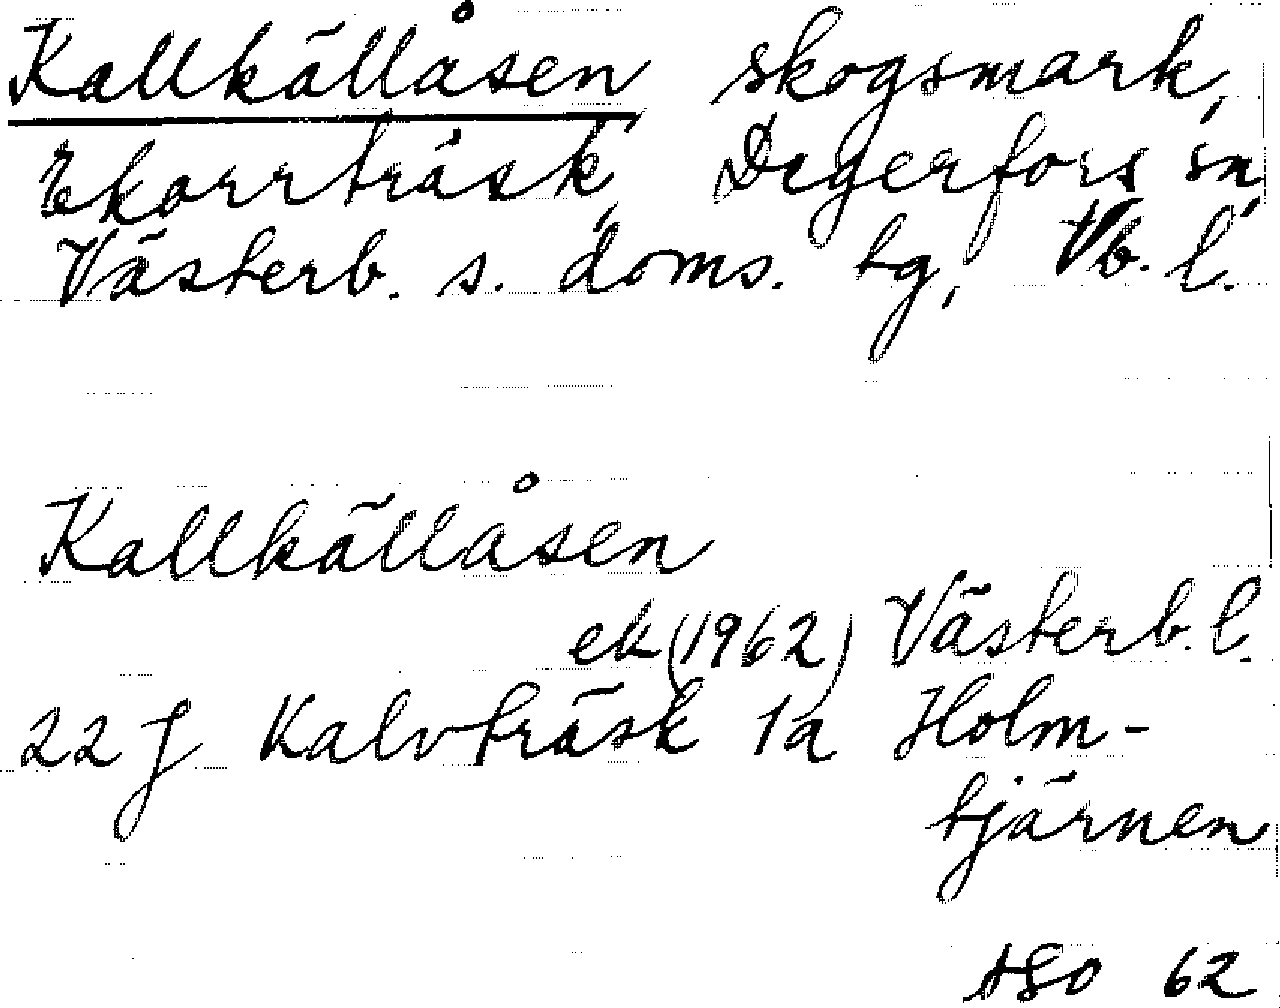 Kallkällåsen skogsmark,
Ekorrträsk, Degerfors sn,
Västerb. s. doms. tg, Vb. l.
Kallkällåsen
ek (1962) Västerb. l.
22 J Kalvträsk 1a Holm-
tjärnen
62